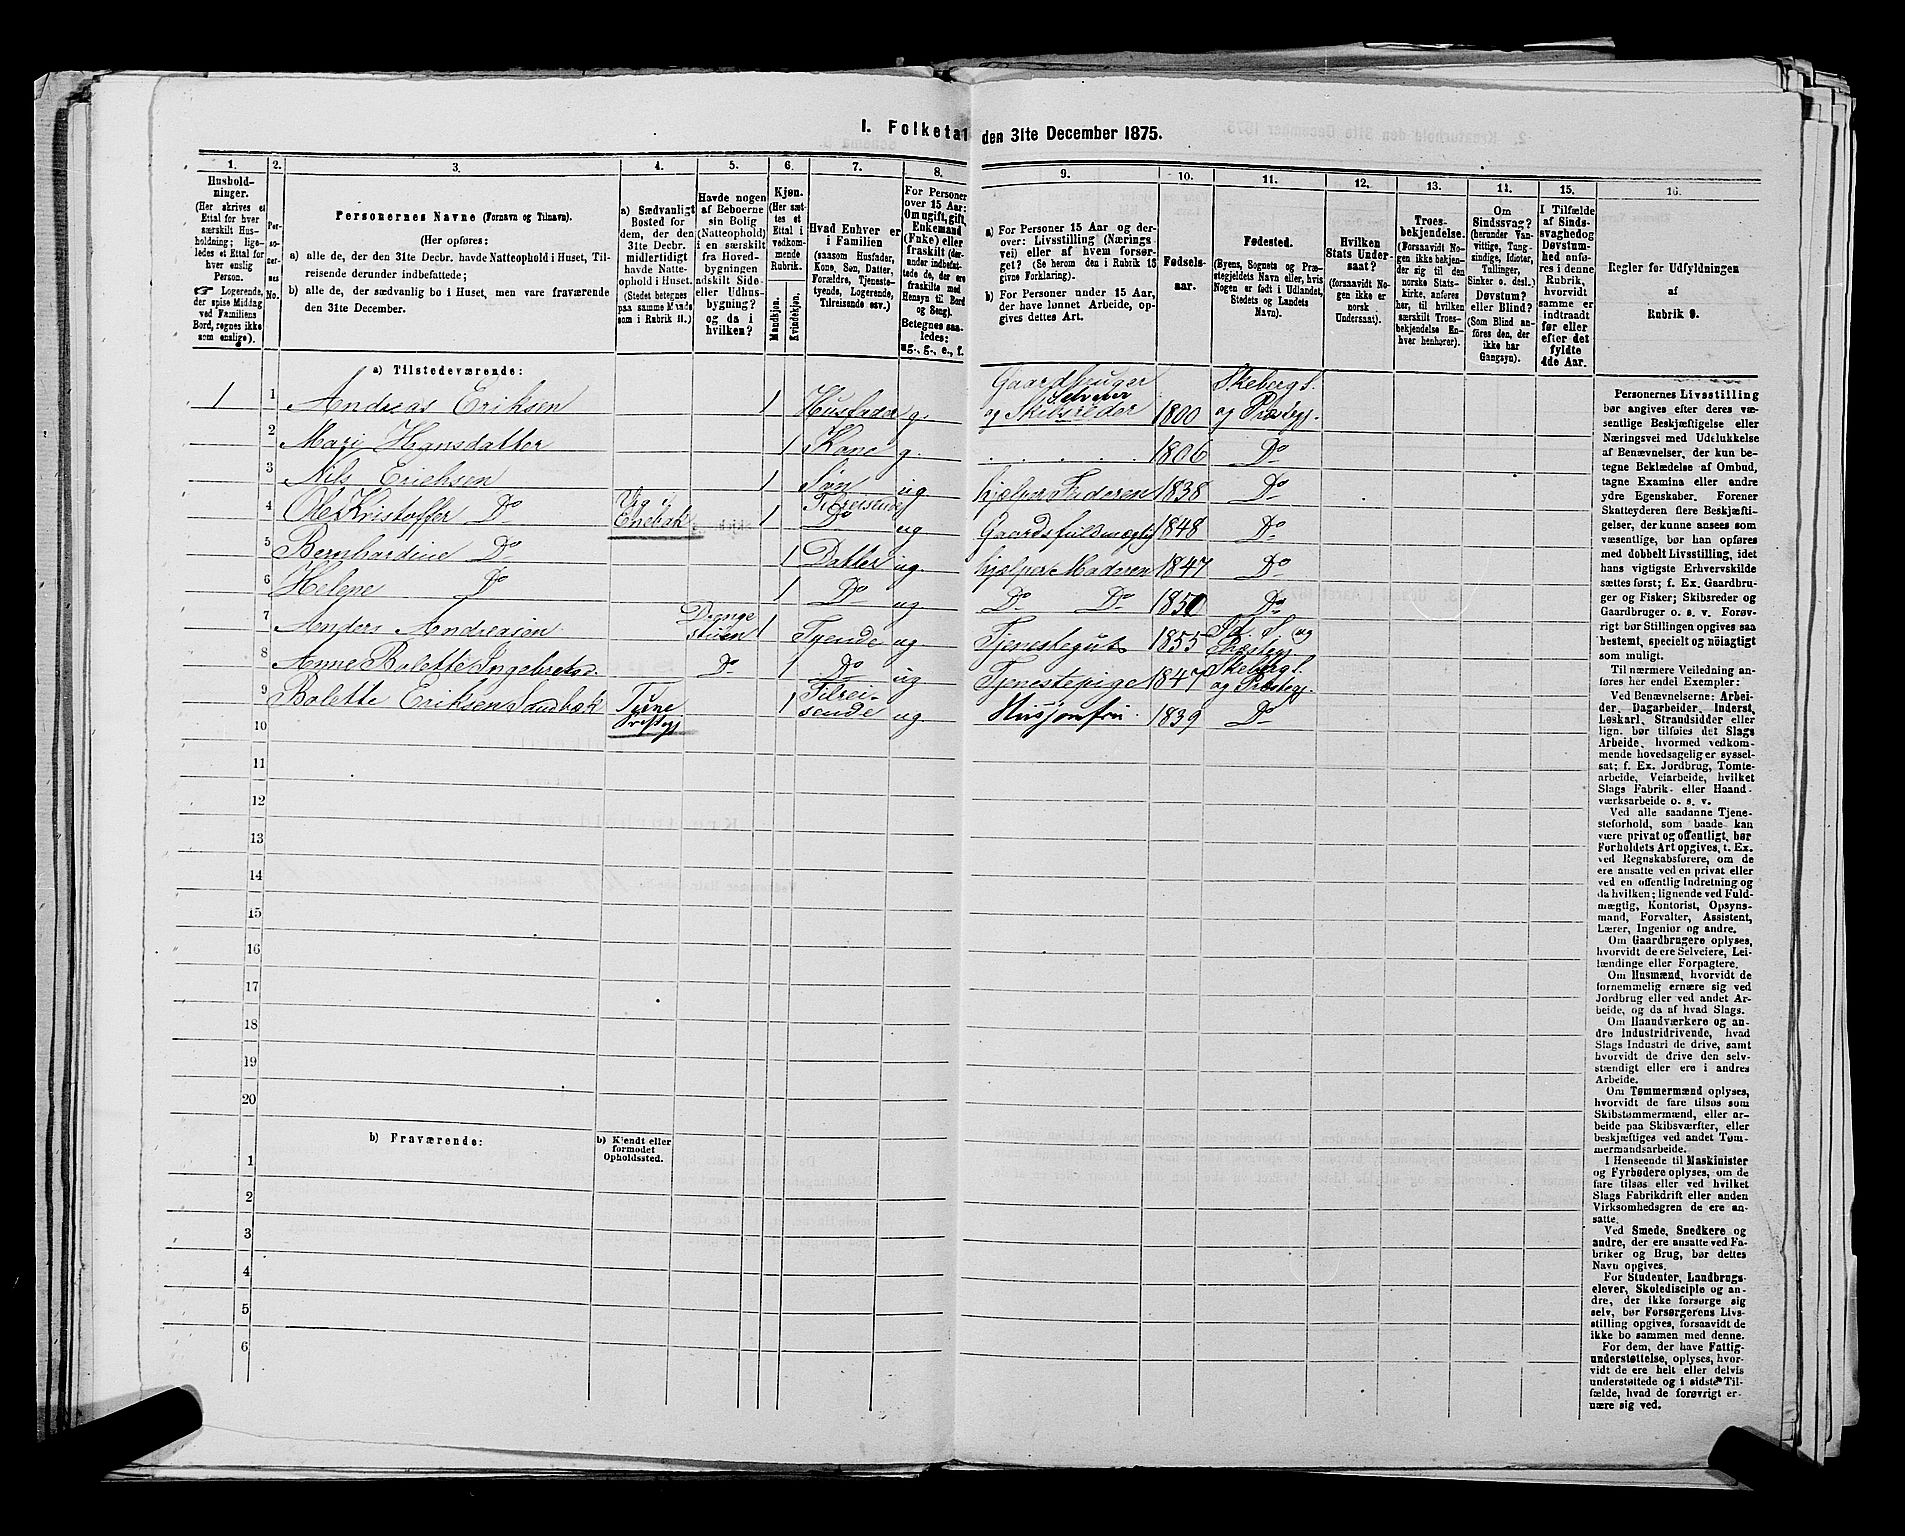 I. Folketal den 31te December 1875.
1. 2. 3. 4. 5. 6. 7. 8. 9. 10. 11. 12. 13. 14. 15. 16.
Hushold-
ninger.
(Her skrives et
Ettal for hver
særskilt Hus-
holdning; lige-
ledes et Ettal for
hver enslig
Person.
☞ Logerende,
der spise Middag
ved Familiens
Bord, regnes ikke
som enslige).
Per-
so-
ner-
nes
No.
Personernes Navne (Fornavn og Tilnavn).
(Her opføres:
a) alle de, der den 31te Decbr. havde Natteophold i Huset, Til-
reisende derunder indbefattede;
b) alle de, der sædvanlig bo i Huset, men vare fraværende
den 31te December.
a) Sædvanligt
Bosted for
dem, der den
31te Decbr.
midlertidigt
havde Natte-
ophold i Huset.
(Stedet betegnes
paa samme Maade
som i Rubrik 11.)
Havde nogen
af Beboerne
sin Bolig
(Natteophold)
i en særskilt
fra Hoved-
bygningen
adskilt Side-
eller Udhus-
bygning?
og da i
hvilken?
Kjøn.
(Her sæt-
tes et
Ettal i
vedkom-
mende
Rubrik.
Mandkjøn.
Kvindekjøn.
Hvad Enhver er
i Familien
(saasom Husfader,
Kone, Søn, Datter,
Forældre, Tjeneste-
tyende, Logerende,
Tilreisende osv.)
For Personer
over 15 Aar:
Om ugift, gift,
Enkemand
(Enke) eller
fraskilt (der-
under indbefat-
tede de, der ere
fraskilte med
Hensyn til Bord
og Seng).
Betegnes saa-
ledes:
ug., g., e., f.
a) For Personer 15 Aar og der-
over: Livsstilling (Nærings-
vei) eller af hvem forsør-
get? (Se herom den i Rubrik 16
givne Forklaring).
b) For Personer under 15 Aar,
der have lønnet Arbeide, op-
gives dettes Art.
Fødsels-
aar.
Fødested.
(Byens, Sognets og Præ-
stegjeldets Navn eller, hvis
Nogen er født i Udlandet,
Stedets og Landets
Navn).
Hvilken
Stats Under-
saat?
(forsaavidt No-
gen ikke er
norsk
Undersaat).
Troes-
bekjendelse.
(Forsaavidt No-
gen ikke bekjen-
der sig til den
norske Stats-
kirke, anføres
her, til hvilken
særskilt Troes-
bekjendelse En-
hver henhører).
Om
Sindssvag?
(herunder Van-
vittige, Tung-
sindige, Idioter,
Tullinger,
Sinker o. desl.)
Døvstum?
eller Blind?
(Som Blind an-
føres den, der
ikke har
Gangsyn).
I Tilfælde
af Sinds-
svaghed og
Døvstum-
hed anfø-
res i denne
Rubrik,
hvorvidt
samme er
indtraadt
før eller
efter det
fyldte
4de Aar.
Regler for Udfyldningen
af
Rubrik 9.
a) Tilstedeværende:
1 1 Andreas Eriksen 1 Husfader g. Gaardbruger Selveier og Skibsreder 1800 Skebergs. og Præstegj.
2 Mari Hansdatter 1 Kone g. . . . . . 1806 Do
3 Nils Erichsen 1 Søn ug hjælper Faderen 1838 Do
4 Ole Kristoffer Do Enebak 1 Tilreisende Do ug Gaardsfuldmægtig 1848 Do
5 Bernhardine Do 1 Datter ug. hjælper Moderen 1847 Do
6 Helene Do 1 Do ug Do Do 1850 Do
7 Anders Andreasen 1 Tyende ug Tjenestegut 1855 og Præstegj
8 Anne Bolette Ingebretsd. Do 1 Do ug Tjenestepige 1847 Skebergs. og Præstegj.
9 Bolette Eriksen Sandbæk Tune Præstegj 1 Tilrei-sende ug. Husjomfru. 1839 Do
10
11
12
13
14
15
16
17
18
19
20
b) Fraværende:
b) Kjendt eller
formodet
Opholdssted.
1
2
3
4
5
6
Personernes Livsstilling
bør angives efter deres væ-
sentlige Beskjæftigelse eller
Næringsvei med Udelukkelse
af Benævnelser, der kun be-
tegne Beklædelse af Ombud,
tagne Examina eller andre
ydre Egenskaber. Forener
Skatteyderen flere Beskjæfti-
gelser, der kunne ansees som
væsentlige, bør han opføres
med dobbelt Livsstilling, idet
hans vigtigste Erhvervskilde
sættes først; f. Ex. Gaardbru-
ger og Fisker; Skibsreder og
Gaardbruger o. s. v. Forøv-
rigt bør Stillingen opgives saa
bestemt, specielt og nöiagtigt
som muligt.
Til nærmere Veiledning an-
føres her endel Exempler:
Ved Benævnelserne: Arbei-
der, Dagarbeider, Inderst,
Løskarl, Strandsidder eller
lign. bør tilføies det Slags
Arbeide, hvormed vedkom-
mende hovedsagelig er syssel-
sat; f. Ex. Jordbrug, Tomte-
arbeide, Veiarbeide, hvilket
Slags Fabrik- eller Haand-
værksarbeide o. s. v.
Ved alle saadanne Tjene-
steforhold, som baade kan
være privat og offentligt, bør
Forholdets Art opgives, t. Ex.
ved Regnskabsførere, om de
ere ansatte ved en privat eller
ved en offentlig Indretning og
da hvilken; lignende ved Fuld-
mægtig, Kontorist, Opsyns-
mand, Forvalter, Assistent,
Lærer, Ingeniør og andre.
Om Gaardbrugere oplyses,
hvorvidt de ere Selveiere, Lei-
lændinge eller Forpagtere.
Om Husmænd, hvorvidt de
fornemmelig ernære sig ved
Jordbrug eller ved andet Ar-
beide, og da af hvad Slags.
Om Haandværkere og an-
dre Industridrivende, hvad
Slags Industri de drive, samt
hvorvidt de drive den selv-
stændigt eller ere i andres
Arbeide.
Om Tømmermænd oplyses,
hvorvidt de fare tilsøs som
Skibstømmermænd, eller ar-
beide paa Skibsværfter, eller
beskjæftiges ved andet Tøm-
mermandsarbeide.
I Henseende til Maskinister
og Fyrbødere oplyses, om de
fare tilsøs eller ved hvilket
Slags Fabrikdrift eller anden
Virksomhedsgren de ere an-
satte.
Ved Smede, Snedkere og
andre, der ere ansatte ved Fa-
briker og Brug, bør dettes
Navn opgives.
For Studenter, Landbrugs-
elever, Skoledisciple og an-
dre, der ikke forsørge sig
selv, bør Forsørgerens Livs-
stilling opgives, forsaavidt de
ikke bo sammen med denne.
For dem, der have Fattig-
understøttelse, oplyses, hvor-
vidt de ere helt eller delvis
understøttede og i sidste Til-
fælde, hvad de forøvrigt er-
nære sig ved.